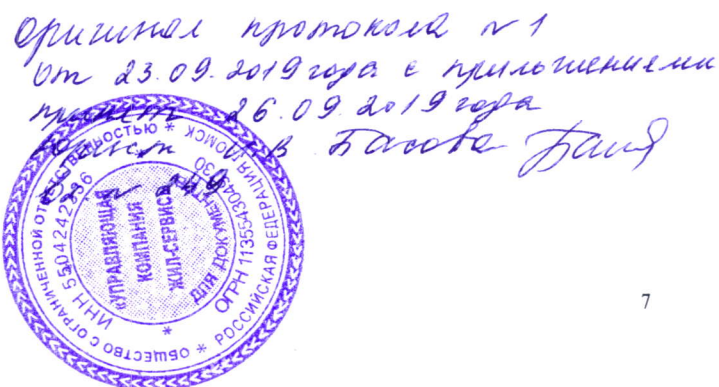 Оригинал протокола №1
от 23.09.2019 года с приложениями
принят 26.09.2019 года
Юрист И.В. Басова
ОБЩЕСТВО С ОГРАНИЧЕННОЙ ОТВЕТСТВЕННОСТЬЮ *
РОССИЙСКАЯ ФЕДЕРАЦИЯ
ИНН 5504242
ОГРН 1135543049
«УПРАВЛЯЮЩАЯ
КОМПАНИЯ
ЖИЛ-СЕРВИС»
ДЛЯ ДОКУМЕНТОВ
7